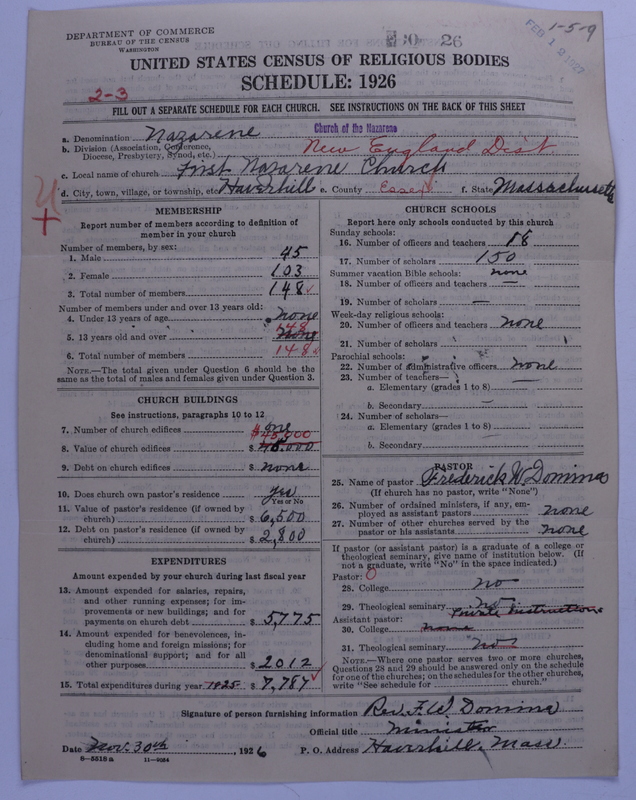 DEPARTMENT OF COMMERCE
BUREAU OF THE CENSUS
WASHINGTON
30 26
FEB 12 1927
1-5-9
UNITED STATES CENSUS OF RELIGIOUS BODIES
SCHEDULE: 1926
2-3
FILL OUT A SEPARATE SCHEDULE FOR EACH CHURCH. SEE INSTRUCTIONS ON THE BACK OF THIS SHEET
a. Denomination Nazarene Church of the Nazarene
b. Division (Association, Conference, Diocese, Presbytery, Synod, etc.) New England Dist
c. Local name of church First Nazarene Church
d. City, town, village, or township, etc. Haverhill e. County Essex f. State Massachusetts
MEMBERSHIP
Report number of members according to definition of
member in your church
Number of members, by sex:
1. Male 45
2. Female 103
3. Total number of members 148
Number of members under and over 13 years old:
4. Under 13 years of age none
5. 13 years old and over none 148
6. Total number of members 148
NOTE.—The total given under Question 6 should be
the same as the total of males and females given under Question 3.
CHURCH BUILDINGS
See instructions, paragraphs 10 to 12
7. Number of church edifices one
$45,000
8. Value of church edifices $ 45.000
9. Debt on church edifices $ none
10. Does church own pastor's residence yes
Yes or No
11. Value of pastor's residence (if owned by
church) $ 6,500
12. Debt on pastor's residence (if owned by
church) $ 2,800
EXPENDITURES
Amount expended by your church during last fiscal year
13. Amount expended for salaries, repairs,
and other running expenses; for im-
provements or new buildings; and for
payments on church debt $ 5,775
14. Amount expended for benevolences, in-
cluding home and foreign missions; for
denominational support; and for all
other purposes $ 2012
15. Total expenditures during year 1925 $ 7,787
CHURCH SCHOOLS
Report here only schools conducted by this church
Sunday schools:
16. Number of officers and teachers 18
17. Number of scholars 150
Summer vacation Bible schools: none
18. Number of officers and teachers —
19. Number of scholars —
Week-day religious schools:
20. Number of officers and teachers none
21. Number of scholars
Parochial schools:
22. Number of administrative officers none
23. Number of teachers—
a. Elementary (grades 1 to 8) —
b. Secondary —
24. Number of scholars—
a. Elementary (grades 1 to 8)
b. Secondary
PASTOR
25. Name of pastor Frederick W Domina
(If church has no pastor, write "None")
26. Number of ordained ministers, if any, em-
ployed as assistant pastors none
27. Number of other churches served by the
pastor or his assistants none
If pastor (or assistant pastor) is a graduate of a college or
theological seminary, give name of institution below. (If
not a graduate, write "No" in the space indicated.)
Pastor:
28. College no
29. Theological seminary no Private instructions
Assistant pastor:
30. College none
31. Theological seminary no
NOTE.—Where one pastor serves two or more churches,
Questions 28 and 29 should be answered only on the schedule
for one of the churches; on the schedules for the other churches,
write "See schedule for church."
Signature of person furnishing information Rev. F. W. Domina
Official title Minister
Date Nov. 30th, 1926 P. O. Address Haverhill, Mass.
8—5518a 11—9084